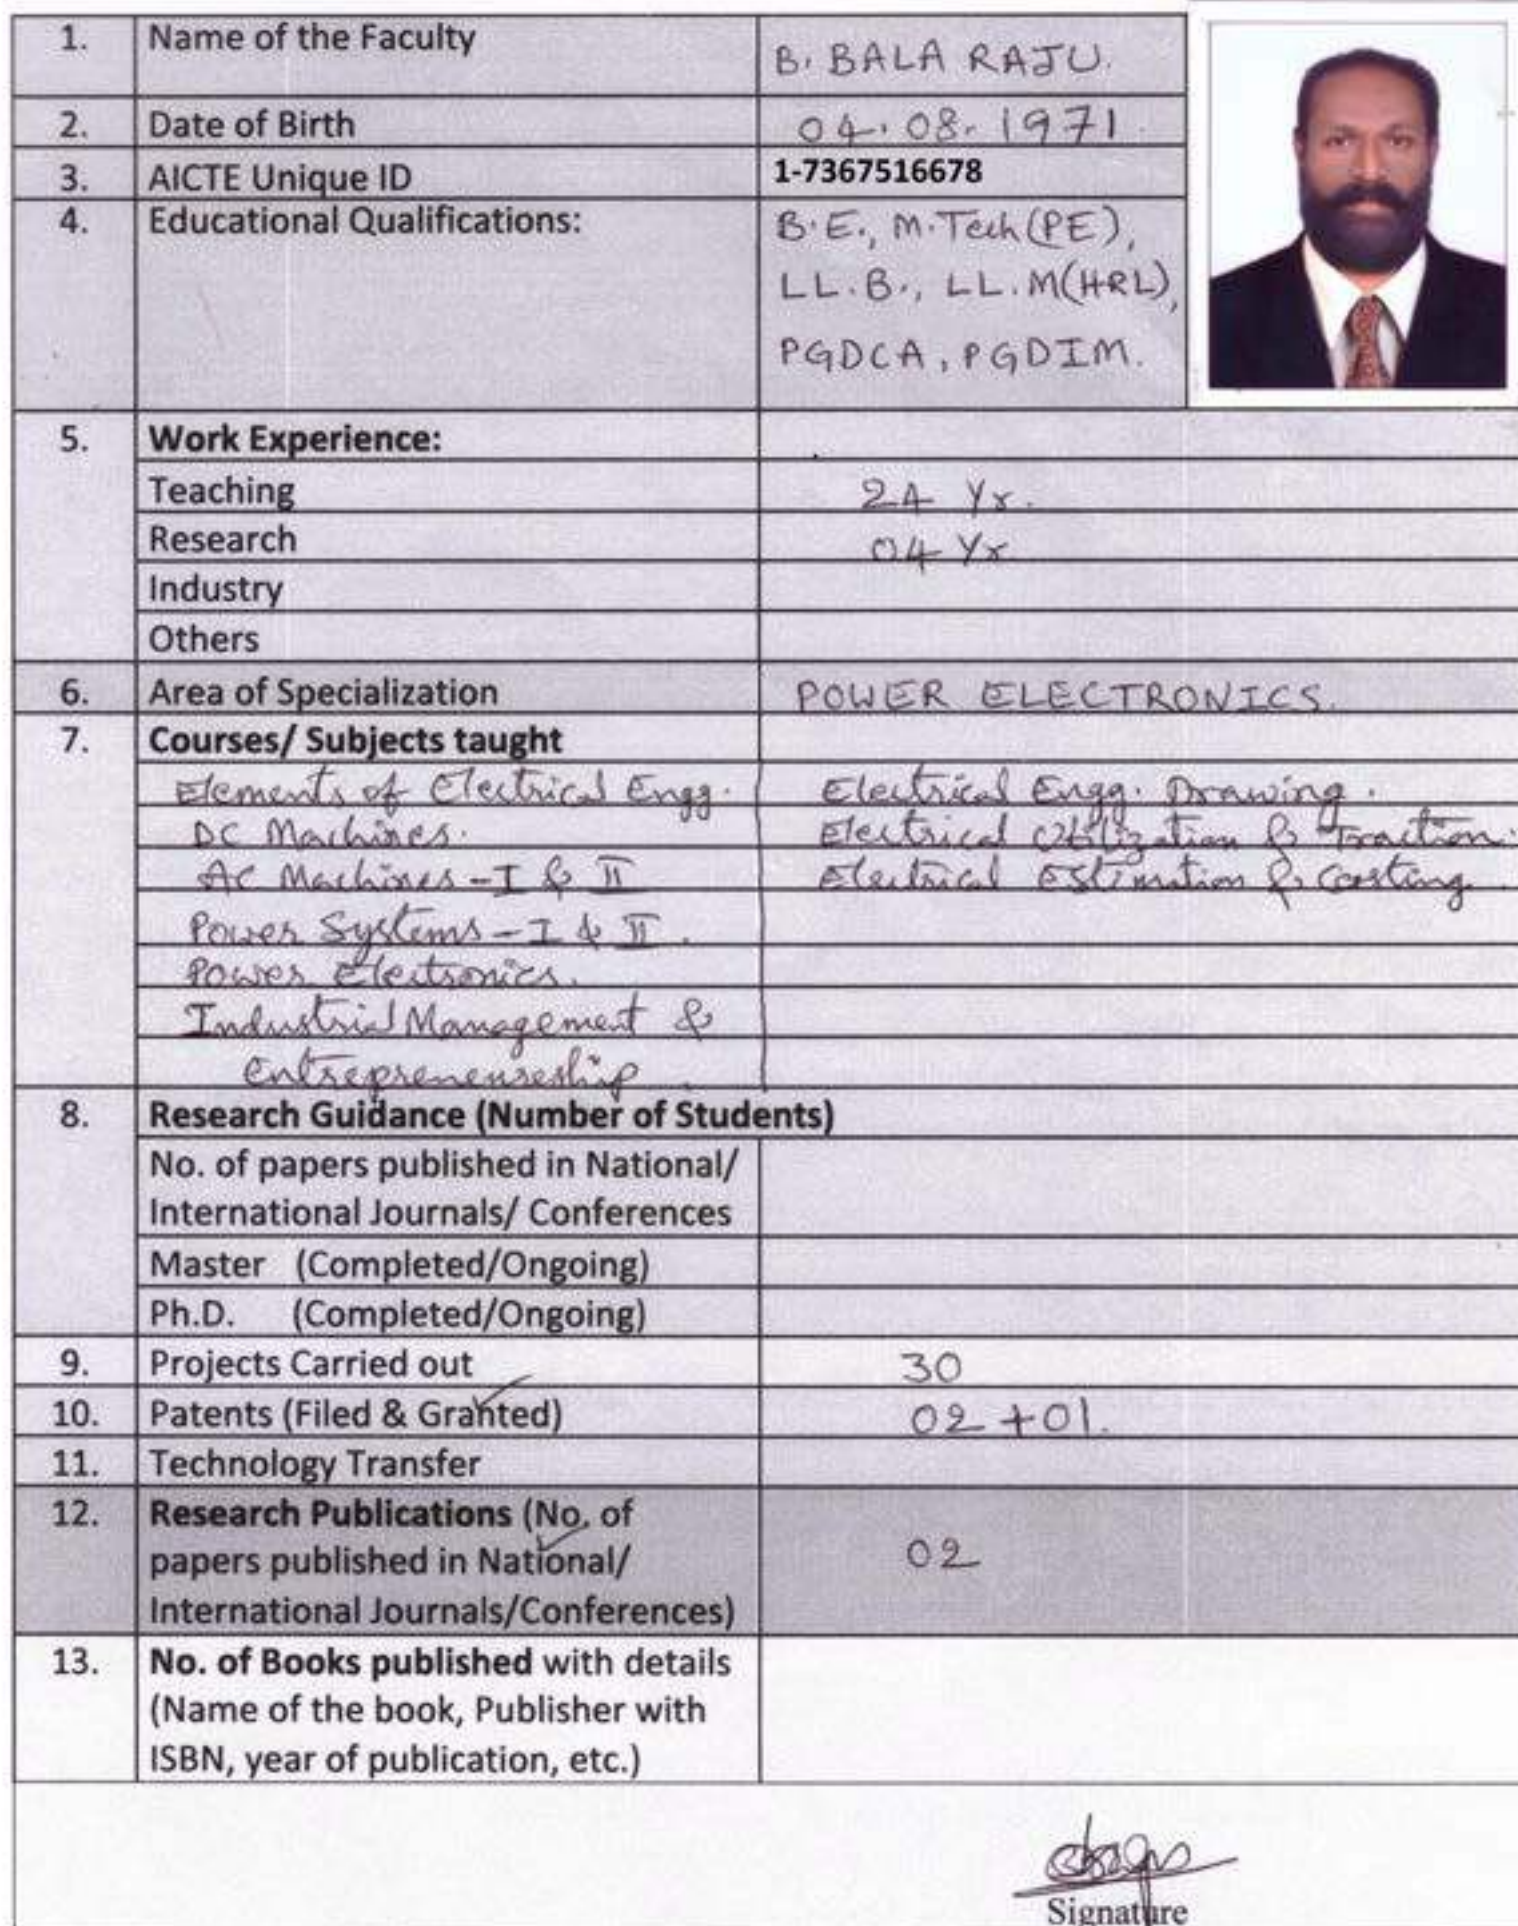 1. Name of the Faculty B. BALA RAJU.
2. Date of Birth 04.08.1971.
3. AICTE Unique ID 1-7367516678
4. Educational Qualifications: B.E., M.Tech (PE),
LL.B., LL.M(HRL),
PGDCA, PGDIM.
5. Work Experience:
Teaching 24 Yr.
Research 04 Yr
Industry
Others
6. Area of Specialization POWER ELECTRONICS.
7. Courses/ Subjects taught
Elements of Electrical Engg. Electrical Engg. Drawing.
DC Machines. Electrical Utilization & Traction.
AC Machines - I & II Electrical Estimation & Costing.
Power Systems - I & II.
Power Electronics.
Industrial Management &
Entrepreneureship.
8. Research Guidance (Number of Students)
No. of papers published in National/
International Journals/ Conferences
Master (Completed/Ongoing)
Ph.D. (Completed/Ongoing)
9. Projects Carried out 30
10. Patents (Filed & Granted) 02 + 01.
11. Technology Transfer
12. Research Publications (No. of
papers published in National/ 02
International Journals/Conferences)
13. No. of Books published with details
(Name of the book, Publisher with
ISBN, year of publication, etc.)
Signature